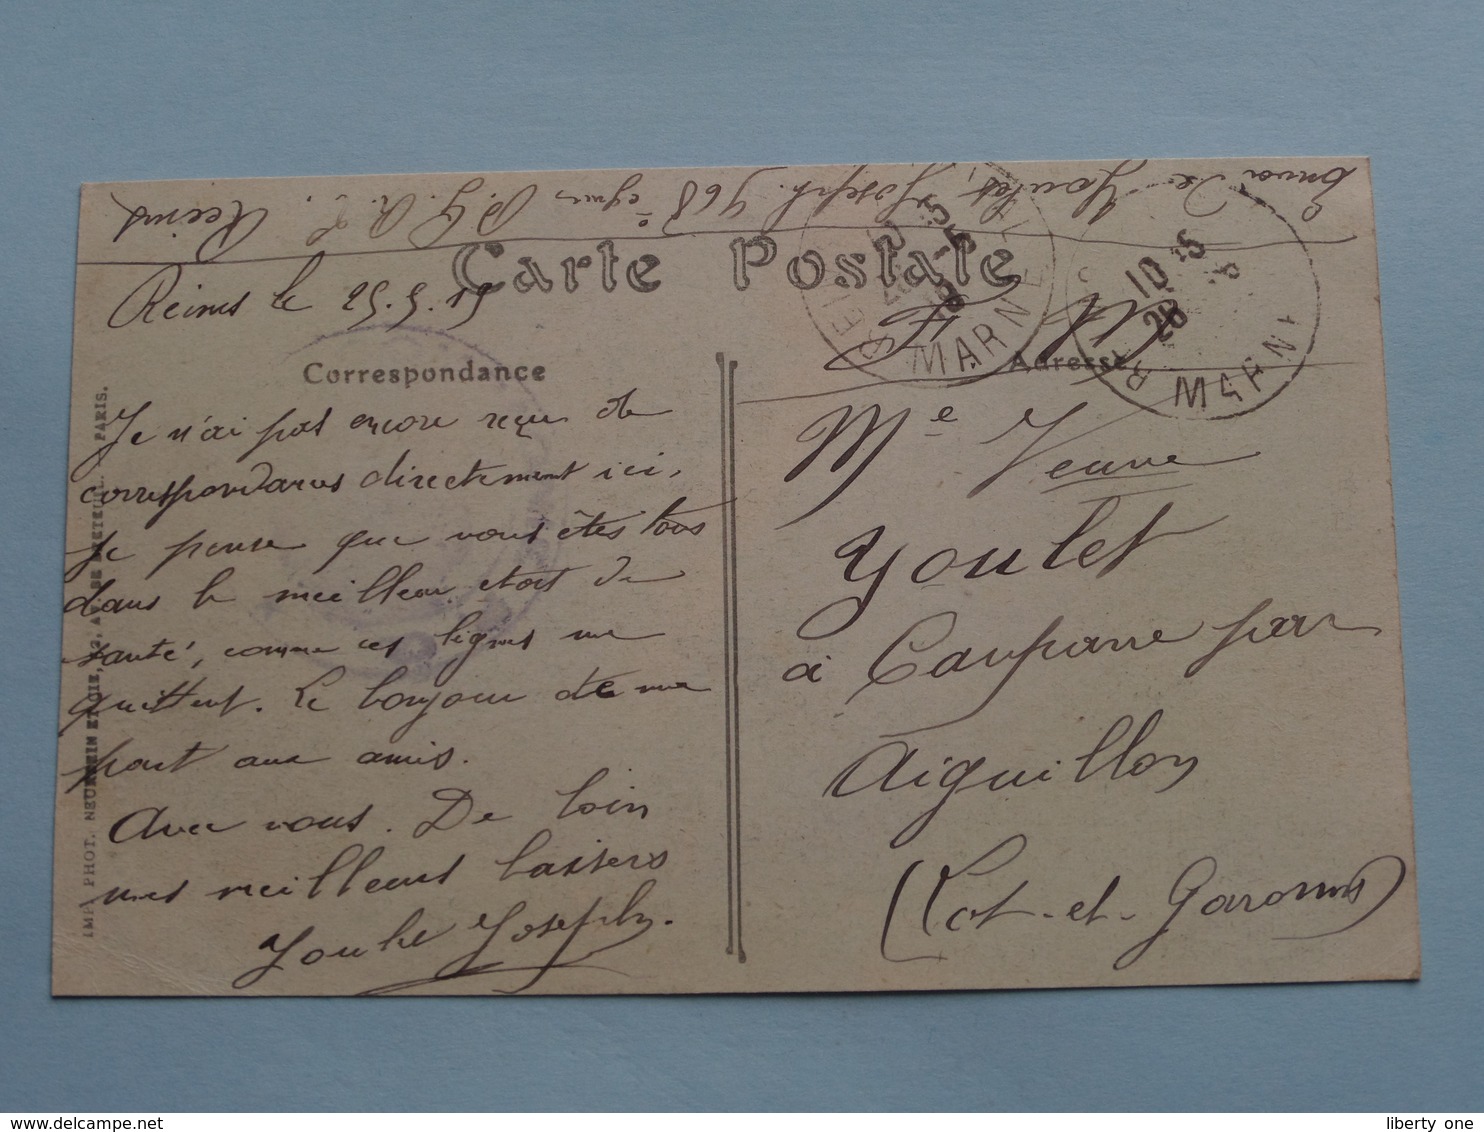 Envoi de Youlet Joseph. 968e P.G.R.L. Reims
Carte Postale
Reims le 25.5.19
F. M.
Correspondance
Adresse
Je n'ai pas encore reçu de
correspondances directement ici,
je pense que vous êtes tous
dans le meilleur état de
santé, comme ces lignes me
quittent. Le bonjour de ma
part aux amis.
Avec vous. De loin
mes meilleurs baisers
Youlet Joseph.
Me Veuve
Youlet
à Caupane par
Aiguillon
(Lot-et-Garonne)
REIMS
MARNE
10 15
26 5
MARNE
IMP. PHOT. NEURDEIN ET CIE, 52, AV. DE BRETEUIL. PARIS.
liberty one
delcampe.net